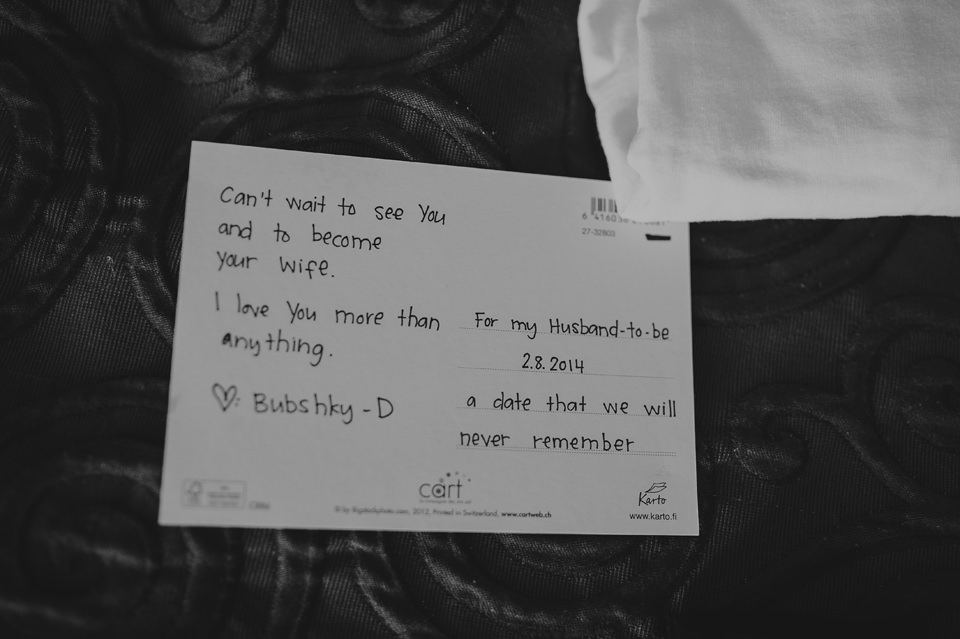 Can't wait to see You
and to become
your wife.
I love You more than
anything.
♡: Bubshky -D
For my Husband-to-be
2.8.2014
a date that we will
never remember
27-32803
cart
Printed in Switzerland, www.cartweb.ch
Karto
www.karto.fi